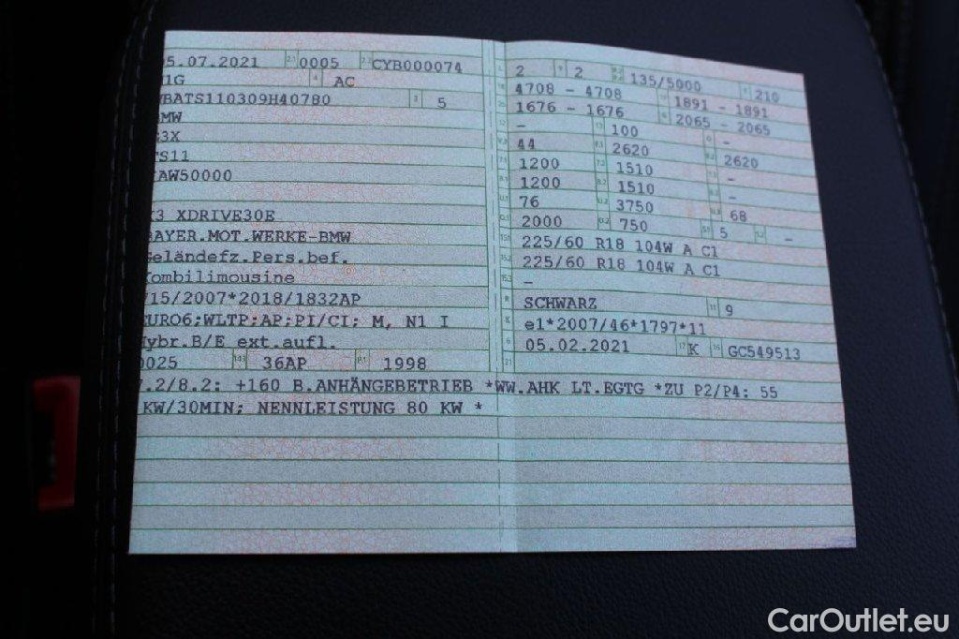 05.07.2021 2.1 0005 2.2 CYB000074
1G 4 AC
WBATS110309H40780 3 5
BMW
G3X
TS11
5AW50000
X3 XDRIVE30E
BAYER.MOT.WERKE-BMW
Geländefz.Pers.bef.
Kombilimousine
715/2007*2018/1832AP
EURO6;WLTP;AP;PI/CI; M, N1 I
Hybr.B/E ext.aufl.
0025 14.1 36AP P.1 1998
7.2/8.2: +160 B.ANHÄNGEBETRIEB *WW.AHK LT.EGTG *ZU P2/P4: 55
KW/30MIN; NENNLEISTUNG 80 KW *
L 2 9 2 135/5000 T 210
18 4708 - 4708 19 1891 - 1891
20 1676 - 1676 G 2065 - 2065
- 100 -
44 2620 2620
1200 1510 -
1200 1510 -
76 3750 68
2000 750 5 -
225/60 R18 104W A C1
225/60 R18 104W A C1
-
R SCHWARZ 11 9
K e1*2007/46*1797*11
6 05.02.2021 17 K 16 GC549513
21
CarOutlet.eu